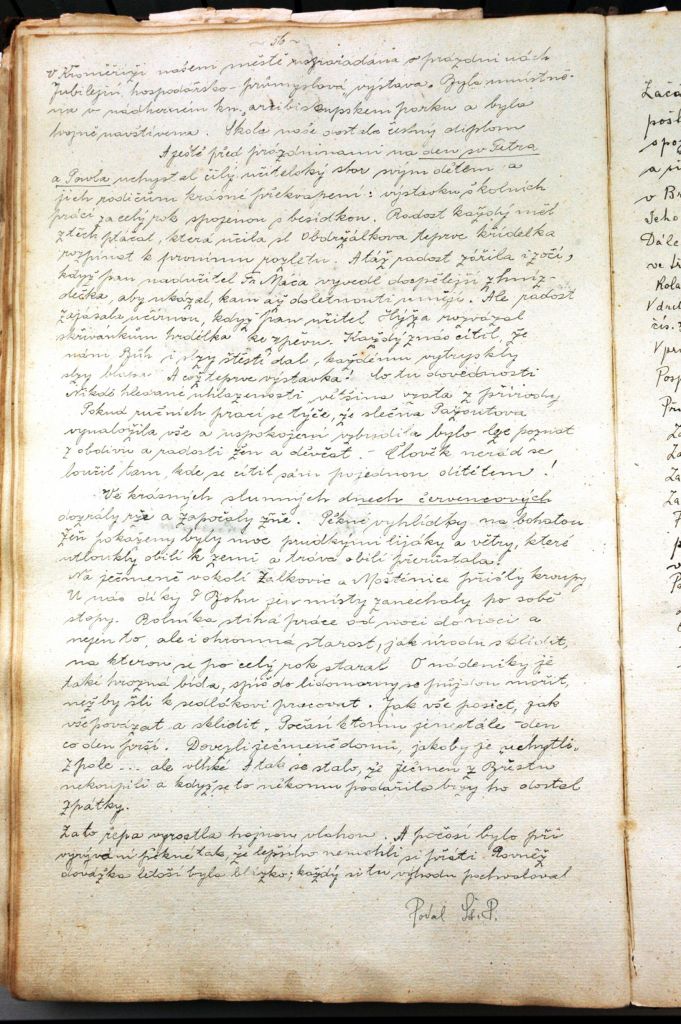 ~ 56 ~
V Kroměříži našem městě uspořádána o prázdninách
Jubilejní hospodářsko-průmyslová výstava. Byla umístně-
na v nádherném kn. arcibiskupském parku a byla
hojně navštívena. Škola naše dostala čestný diplom
A ještě před prázdninami na den sv Petra
a Pavla uchystal čilý učitelský sbor svým dětem a
jich rodičům krásné překvapení: výstavku školních
prácí za celý rok spojenou s besídkou. Radost každý měl
z těch ptáčat, která učila sl Obdržálkova teprve křidélka
rozpínat k prvnímu rozletu. A táž radost zářila i z očí,
když pan nadučitel Fr Máca vyvedl dospělejší z hníz-
dečka, aby ukázal, kam až doletnouti umějí. Ale radost
zajásala učírnou, když pan učitel Hýža rozvázal
skřivánkům hrdélka ke zpěvu. Každý z nás cítil, že
nám Bůh i slzy štěstí dal, každému vytryskly
slzy blaha. A což teprve výstavka! Co tu dovednosti
Nikde hledané uhlazenosti většina vzata z přírody.
Pokud ručních prací se týče, že slečna Pažoutova
vynaložila vše a uspokojení vzbudila bylo lze poznat
z obdivu a radosti žen a děvčat. – Člověk nerad se
loučil tam, kde se cítil sám pojednou dítětem!
Ve krásných slunných dnech červencových
dozrály rže a započaly žně. Pěkné vyhlídky na bohatou
žeň pokaženy byly moc prudkými lijáky a větry, které
utloukly obilí k zemi a tráva obilí přerůstala.
Na ječmeně v okolí Žalkovic a Moštěnice přišly kroupy
U nás díky P Bohu jen místy zanechaly po sobě
stopy. Rolníka stíhá práce od noci do noci a
nejen to, ale i ohromná starost, jak úrodu sklidit,
na kterou se po celý rok staral O nádeníky je
také hrozná bída, spíš do lidomorny se půjdou mořit,
než by šli k sedlákovi pracovat. Jak vše posíct, jak
vše povázat a sklidit. Počasí k tomu jen stále – den
co den horší. Dovezli ječmeně domů, jakoby je „uchytli"
z pole --- ale vlhké A tak se stalo, že ječmen z Břestu
nekoupili a když se to někomu podařilo brzy ho dostal
zpátky.
Zato řepa vyrostla hojnou vláhou. A počasí bylo při
vyrývání pěkné tak, že lepšího nemohli si přáti. Rovněž
dovážka letoší byla blízko; každý si tu výhodu pochvaloval
Podal St. P.